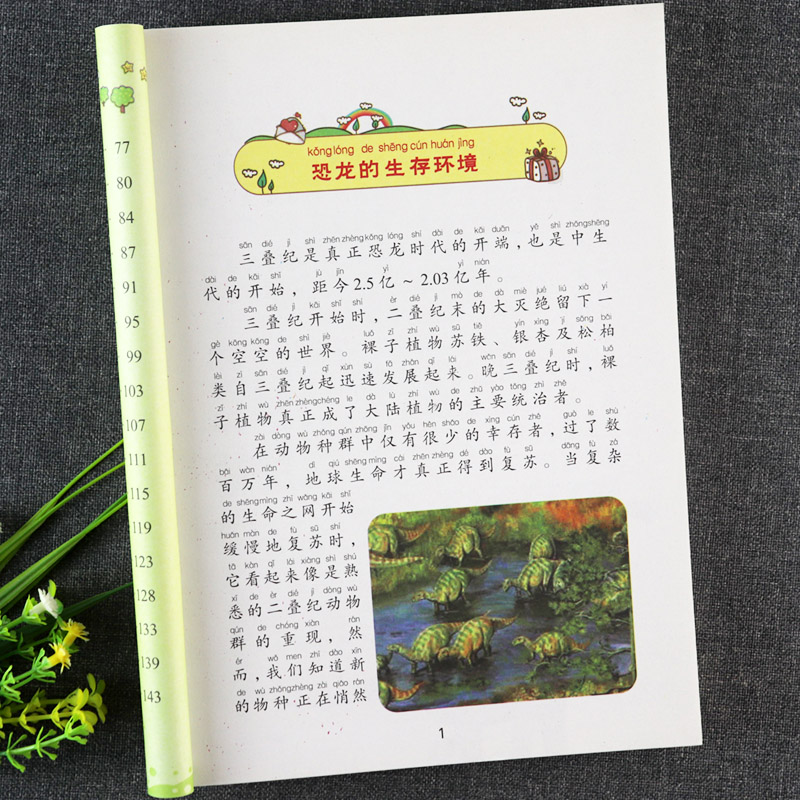 77
80
84
87
91
95
99
103
107
111
115
119
123
128
133
139
143
kǒng lóng de shēng cún huán jìng
恐龙的生存环境
sān dié jì shì zhēn zhèng kǒng lóng shí dài de kāi duān yě shì zhōng shēng
三叠纪是真正恐龙时代的开端，也是中生
dài de kāi shǐ jù jīn yì yì nián
代的开始，距今2.5亿~2.03亿年。
sān dié jì kāi shǐ shí èr dié jì mò de dà miè jué liú xià yí
三叠纪开始时，二叠纪末的大灭绝留下一
gè kōng kōng de shì jiè luǒ zǐ zhí wù sū tiě yín xìng jí sōng bǎi
个空空的世界。裸子植物苏铁、银杏及松柏
lèi zì sān dié jì qǐ xùn sù fā zhǎn qǐ lái wǎn sān dié jì shí luǒ
类自三叠纪起迅速发展起来。晚三叠纪时，裸
zǐ zhí wù zhēn zhèng chéng le dà lù zhí wù de zhǔ yào tǒng zhì zhě
子植物真正成了大陆植物的主要统治者。
zài dòng wù zhǒng qún zhōng jǐn yǒu hěn shǎo de xìng cún zhě guò le shù
在动物种群中仅有很少的幸存者，过了数
bǎi wàn nián dì qiú shēng mìng cái zhēn zhèng dé dào fù sū dāng fù zá
百万年，地球生命才真正得到复苏。当复杂
de shēng mìng zhī wǎng kāi shǐ
的生命之网开始
huǎn màn de fù sū shí
缓慢地复苏时，
tā kàn qǐ lái xiàng shì shú
它看起来像是熟
xī de èr dié jì dòng wù
悉的二叠纪动物
qún de chóng xiàn rán
群的重现，然
ér wǒ men zhī dào xīn
而，我们知道新
de wù zhǒng zhèng zài qiǎo rán
的物种正在悄然
1